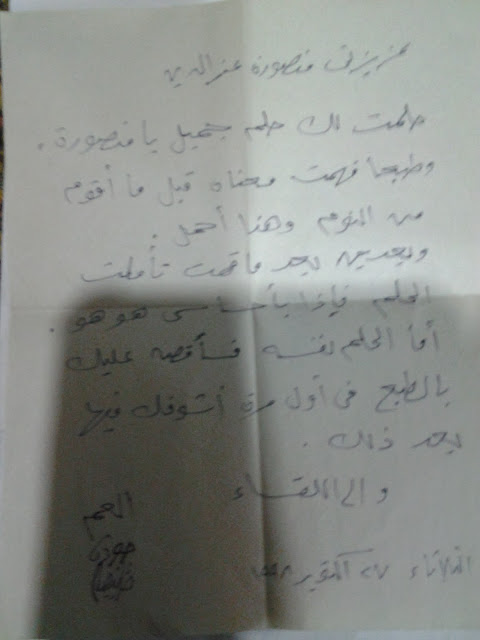 عزيزتى منصورة عز الدين
حلمت لك حلم جميل يا منصورة .
وطبعا فهمت معناه قبل ما أقوم
من النوم وهنا أجمل .
وبعدين بعد ما قمت تأملت
الحلم فإذا بأحساسى هو هو .
أما الحلم نفسه فسأقصه عليك
بالطبع فى أول مرة أشوفك فيها
بعد ذلك .
والى اللقاء
العم
الثلاثاء ٢٧ أكتوبر ١٩٩٨